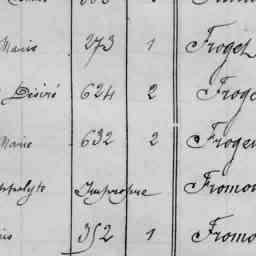 Marie 273 1 Froget
Désiré 624 2 Froge
Marie 632 2 Froger
ppolyte Impropre Fromo
is 352 1 Fromo